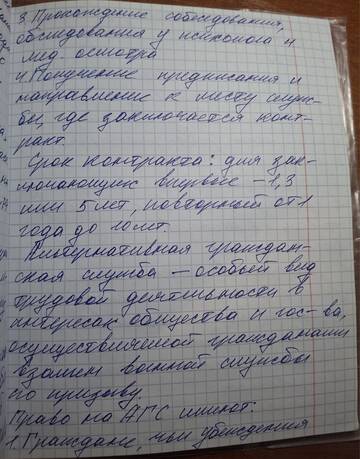 3. Прохождение собеседования,
обследования у психолога и
мед. осмотра
4. Получение предписания и
направление к месту служ-
бы, где заключается конт-
ракт.
Срок контракта: для зак-
лючающих впервые – 1,3
или 5 лет, повторный от 1
года до 10 лет.
Альтернативная граждан-
ская служба – особый вид
трудовой деятельности в
интересах общества и гос-ва,
осуществляемой гражданами
взамен военной службы
по призыву.
Право на АГС имеют:
1. Граждане, чьи убеждения